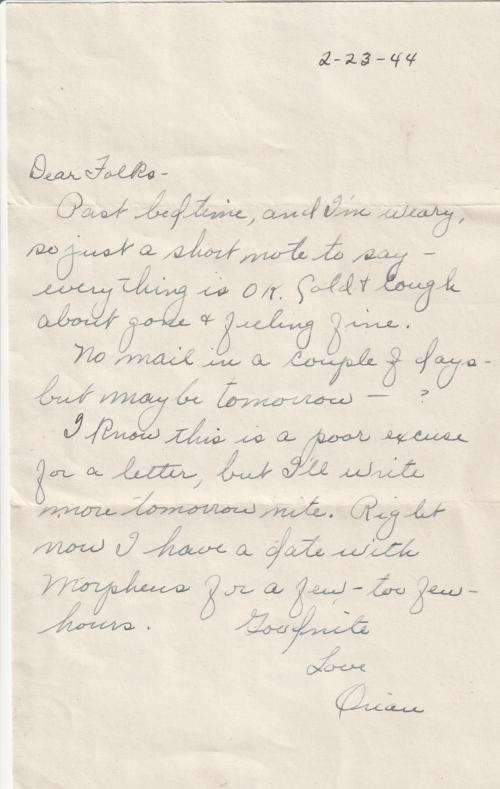 2-23-44
Dear Folks-
Past bedtime, and I'm weary,
so just a short note to say -
everything is OK. Cold & cough
about gone & feeling fine.
No mail in a couple of days-
but maybe tomorrow - ?
I know this is a poor excuse
for a letter, but I'll write
more tomorrow nite. Right
now I have a date with
Morpheus for a few - too few -
hours. Goodnite
Love